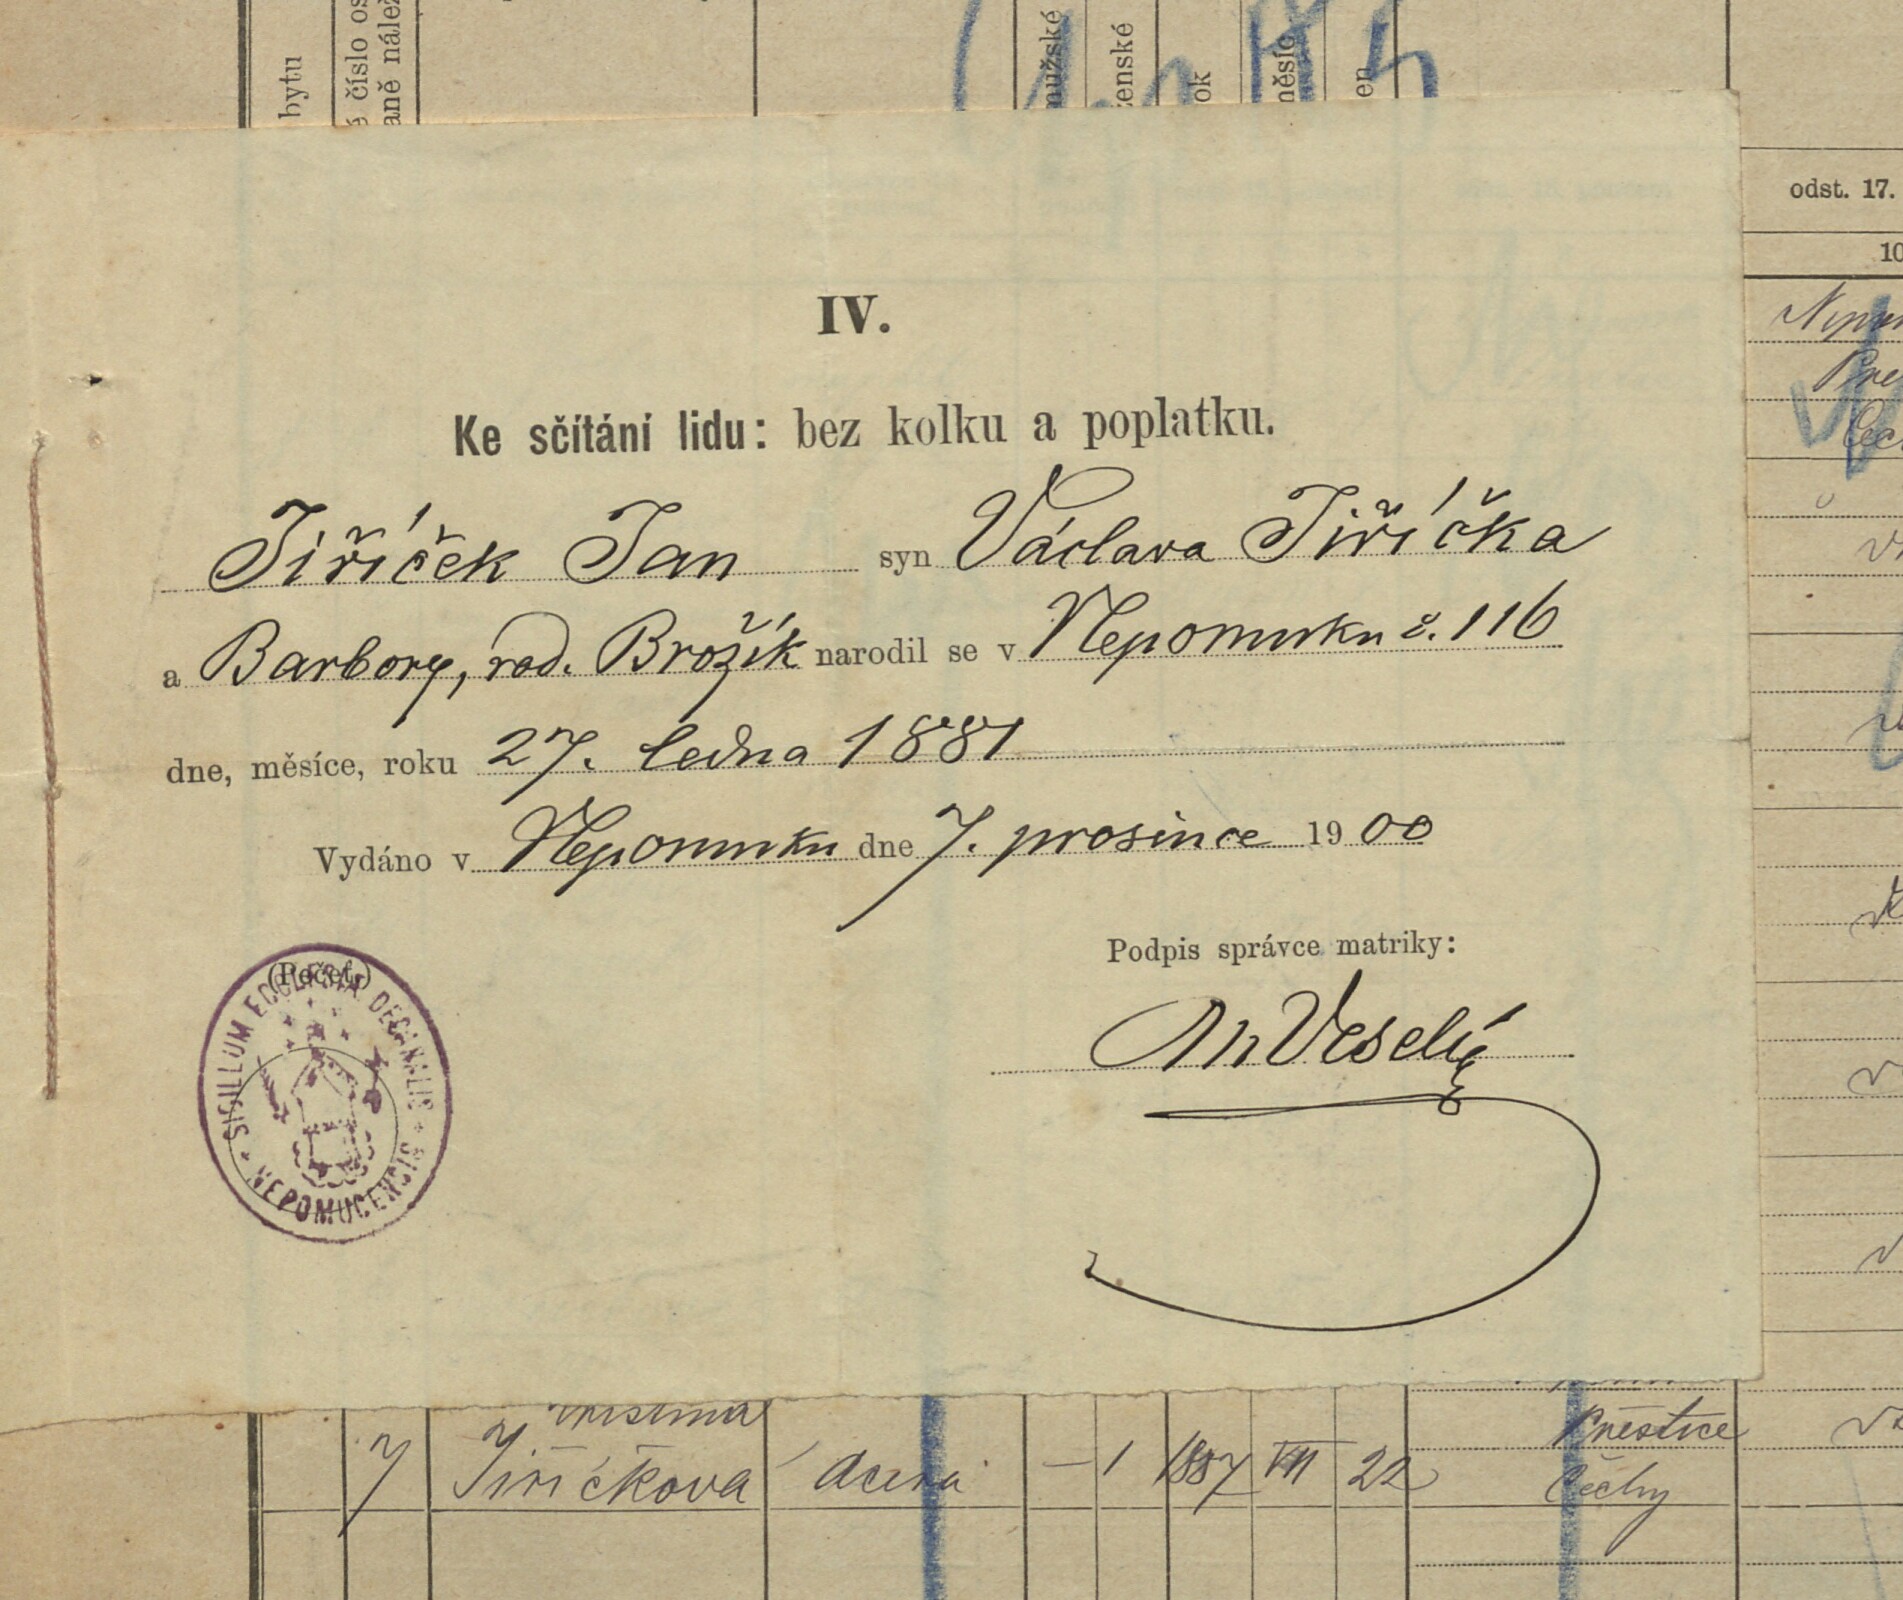 bytu
číslo
mužské
ženské
měsíc
odst. 17.
10
IV.
Ke sčítání lidu: bez kolku a poplatku.
Jiříček Jan syn Václava Jiříčka
a Barbory, rod. Brožík narodil se v Nepomuku č. 116
dne, měsíce, roku 27. ledna 1881
Vydáno v Nepomuku dne 7. prosince 1900
Podpis správce matriky:
(Pečeť.)
SIGILLUM ECCLESIAE DECANALIS
NEPOMUCENSIS
Veselý
Přestice
7 Jiříčkova dcera — 1 1887 VII 22 Čechy